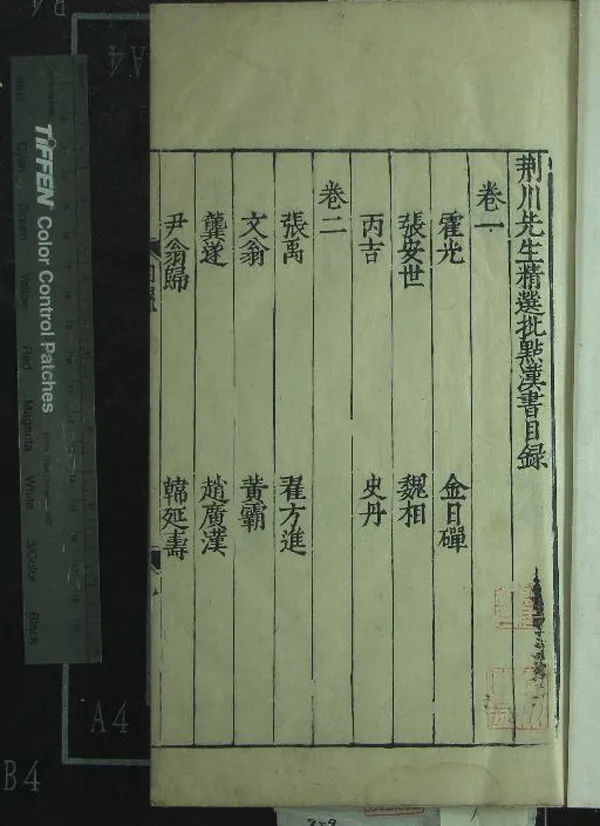 荆川先生精選批點漢書目録
卷一
霍光 金日磾
張安世 魏相
丙吉 史丹
卷二
張禹 翟方進
文翁 黃霸
龔遂 趙廣漢
尹翁歸 韓延壽
TIFFEN Color Control Patches
Cyan Green Yellow Red Magenta White 3/Color Black
A4
A4
B4
B4